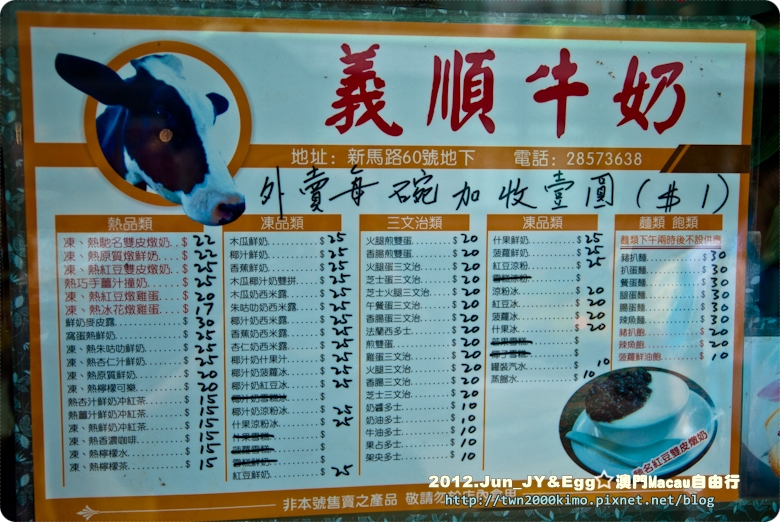 義順牛奶
地址: 新馬路60號地下 電話: 28573638
外賣每碗加收壹圓(#1)
熱品類
凍、熱馳名雙皮燉奶 $22
凍、熱原質燉鮮奶 $22
凍、熱紅豆雙皮燉奶 $25
熱巧手薑汁撞奶 $25
凍、熱紅豆燉雞蛋 $20
凍、熱冰花燉雞蛋 $17
鮮奶麥皮露 $30
窩蛋熱鮮奶 $25
凍、熱朱咕叻鮮奶 $25
凍、熱杏仁汁鮮奶 $25
凍、熱原質鮮奶 $20
凍、熱檸檬可樂 $20
熱杏汁鮮奶冲紅茶 $15
熱薑汁鮮奶冲紅茶 $15
凍、熱鮮奶冲紅茶 $15
凍、熱香濃咖啡 $15
凍、熱檸檬水 $15
凍、熱檸檬茶 $15
凍品類
木瓜鮮奶 $25
椰汁鮮奶 $25
香蕉鮮奶 $25
木瓜椰汁奶雙拼 $25
木瓜奶西米露 $25
朱咕叻奶西米露 $25
椰汁奶西米露 $25
香蕉奶西米露 $25
杏仁奶西米露 $25
椰汁奶什果汁 $25
椰汁奶菠蘿冰 $25
椰汁奶紅豆冰 $25
椰汁奶涼粉冰 $25
什果涼粉冰 $25
紅豆鮮奶 $25
三文治類
火腿煎雙蛋 $20
香腸煎雙蛋 $20
火腿蛋三文治 $20
芝士蛋三文治 $20
芝士火腿三文治 $20
午餐蛋三文治 $20
香腸蛋三文治 $20
法蘭西多士 $20
煎雙蛋 $20
雞蛋三文治 $20
火腿三文治 $20
香腸三文治 $20
芝士三文治 $20
奶醬多士 $10
奶油多士 $10
牛油多士 $10
果占多士 $10
架央多士 $10
凍品類
什果鮮奶 $25
菠蘿鮮奶 $25
紅豆涼粉 $25
涼粉冰 $20
紅豆冰 $20
菠蘿冰 $20
什果冰 $20
罐裝汽水 $10
蒸餾水 $10
麵類 飽類
麵類下午兩時後不設供應
豬扒麵 $30
扒蛋麵 $30
餐蛋麵 $30
腿蛋麵 $30
腸蛋麵 $30
辣魚麵 $30
豬扒飽 $20
辣魚飽 $20
菠蘿鮮油飽 $10
馳名紅豆雙皮燉奶
非本號售賣之產品 敬請勿於店內享用
2012.Jun_JY&Egg☆澳門Macau自由行
http://twn2000kimo.pixnet.net/blog